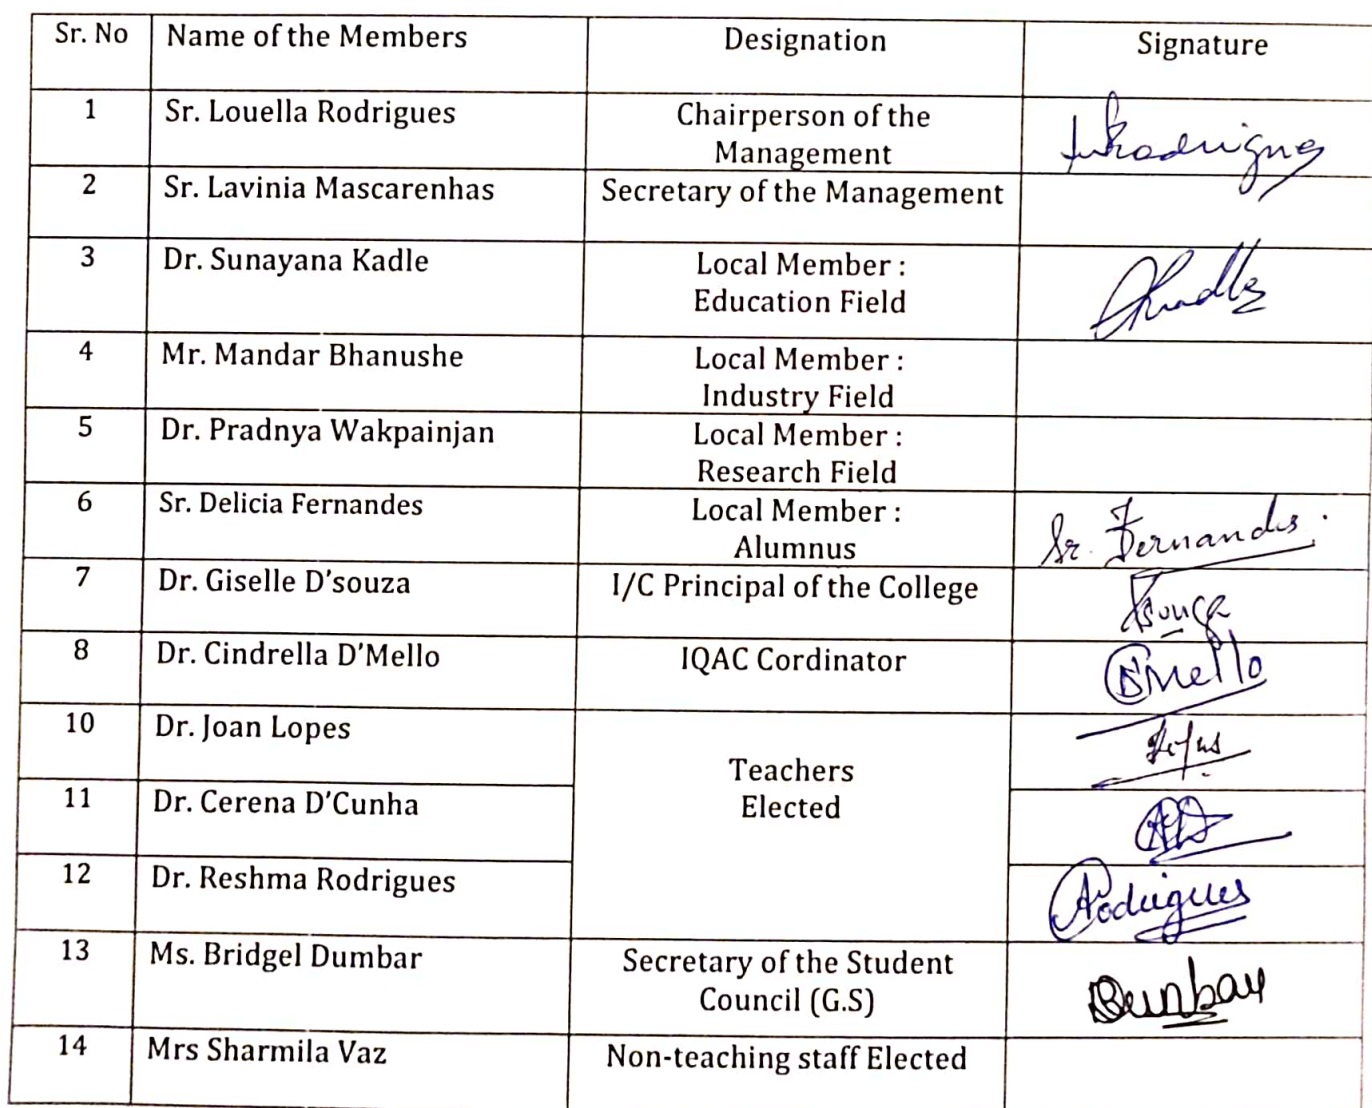 Sr. No Name of the Members Designation Signature
1 Sr. Louella Rodrigues Chairperson of the
Management
2 Sr. Lavinia Mascarenhas Secretary of the Management
3 Dr. Sunayana Kadle Local Member :
Education Field
4 Mr. Mandar Bhanushe Local Member :
Industry Field
5 Dr. Pradnya Wakpainjan Local Member :
Research Field
6 Sr. Delicia Fernandes Local Member : Sr. Fernandes.
Alumnus
7 Dr. Giselle D'souza I/C Principal of the College
8 Dr. Cindrella D'Mello IQAC Cordinator DMello
10 Dr. Joan Lopes
Teachers
11 Dr. Cerena D'Cunha Elected
12 Dr. Reshma Rodrigues Rodrigues
13 Ms. Bridgel Dumbar Secretary of the Student
Council (G.S)
14 Mrs Sharmila Vaz Non-teaching staff Elected